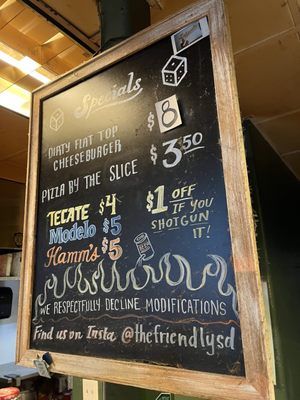 Specials
DIRTY FLAT TOP $8
CHEESEBURGER
PIZZA BY THE SLICE $3.50
TECATE $4
Modelo $5
Hamm's $5
$1 OFF
IF YOU
SHOTGUN
IT!
WE RESPECTFULLY DECLINE MODIFICATIONS
Find us on Insta @thefriendlysd